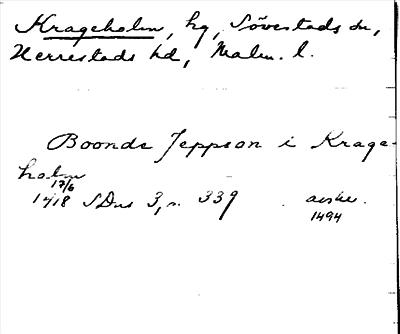 Krageholm, hg, Sövestads sn,
Herrestads hd, Malm. l.
Boonde Jeppson i Krage-
holm
17/6
1418 SDns 3, s. 339 avskr.
1494